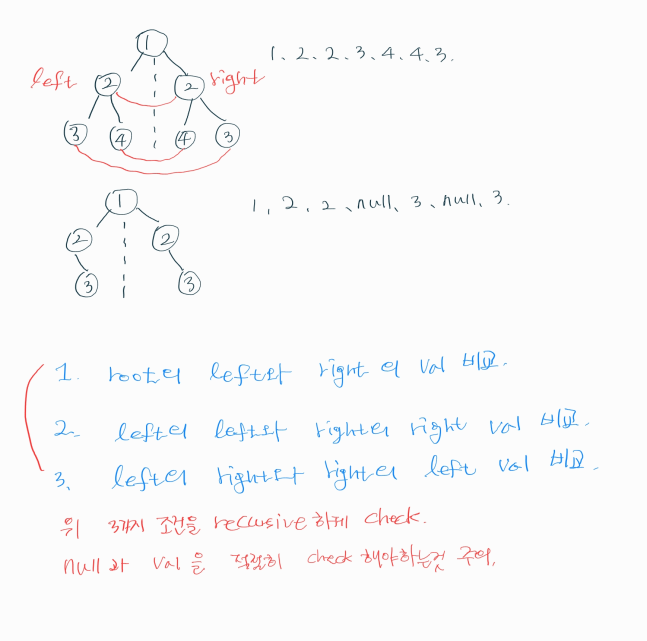 1
1, 2, 2, 3, 4, 4, 3.
left 2 2 right
3 4 4 3
1
1, 2, 2, null, 3, null, 3.
2 2
3 3
1. root의 left와 right의 val 비교.
2. left의 left와 right의 right val 비교.
3. left의 right와 right의 left val 비교.
위 3가지 조건을 recursive 하게 check.
null과 val을 적절히 check 해야하는것 주의.